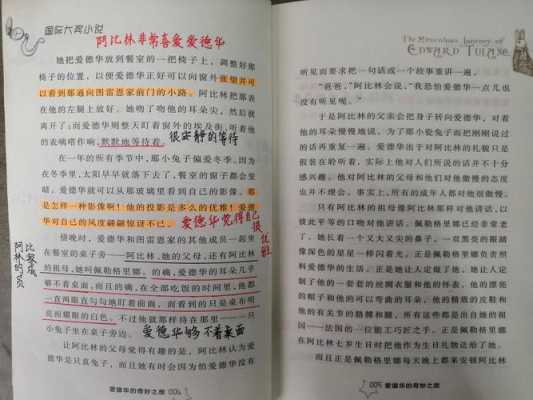 国际大奖小说
阿比林非常喜爱爱德华
她把爱德华放到餐室的一把椅子上，调整好那
椅子的位置，以便爱德华正好可以向窗外张望并可
以看到那通向图雷恩家前门的小路。阿比林把那表
在他的左腿上放好。她吻了吻他的耳朵尖，然后就
离开了；而爱德华则整天盯着窗外的埃及街，听着他
的表嘀嗒作响，默默地等待着。
很安静的等待
在一年的所有季节中，那小兔子偏爱冬季。因为
在冬季里，太阳早早就落下去了，餐室的窗子都会变
暗，爱德华就可以从那玻璃里看到自己的影像。那
是怎样一种影像啊！他的投影是多么的优雅！爱德
华对自己的风度翩翩惊讶不已。
爱德华觉得自己
很优雅
傍晚时，爱德华和图雷恩家的其他成员一起坐
在餐室的桌子旁——阿比林、她的父母，还有阿比林
的祖母，她叫佩勒格里娜。的确，爱德华的耳朵几乎
够不着桌面；而且的确，在全部吃饭的时间里，他都
一直两眼直勾勾地盯着前面，而看到的只是桌布明
亮而耀眼的白色。不过他就那样待在那里——一只
小兔子坐在桌子旁边。
爱德华够不着桌面
让阿比林的父母觉得有趣的是，阿比林认为爱
德华是只真兔子，而且她有时会因为怕爱德华没有
爱德华的奇妙之旅
The Miraculous Journey of
EDWARD TULANE
听见而要求把一句话或一个故事重讲一遍。
“爸爸，”阿比林会说，“我恐怕爱德华一点儿也
没有听见呢。”
于是阿比林的父亲会把身子转向爱德华，对着
他的耳朵慢慢地说，为了那小瓷兔子而把刚刚说过
的话再重复一遍。爱德华出于对阿比林的礼貌只是
假装在聆听着，实际上他对人们所说的话并不十分
感兴趣。他对阿比林的父母和他们对他傲慢的态度
也并不理会。事实上，所有的成年人都对他很傲慢。
只有阿比林的祖母像阿比林那样对他讲话，以
彼此平等的口吻对他讲话。佩勒格里娜已经非常老
了。她长着一个又大又尖的鼻子，一双黑亮的眼睛
像深色的星星一样闪着光。正是佩勒格里娜负责照
料爱德华的生活。正是她让人定做了他，她让人定
制了他的一套套的丝绸衣服和他的怀表、他的漂亮
的帽子和他的可以弯曲的耳朵、他的精致的皮鞋和
他的有关节的胳膊和腿，所有这些都是出自她的祖
国——法国的一位能工巧匠之手。正是佩勒格里娜
在阿比林七岁生日时把他作为生日礼物送给了她。
而且正是佩勒格里娜每天晚上都来安顿阿比林
爱德华的奇妙之旅